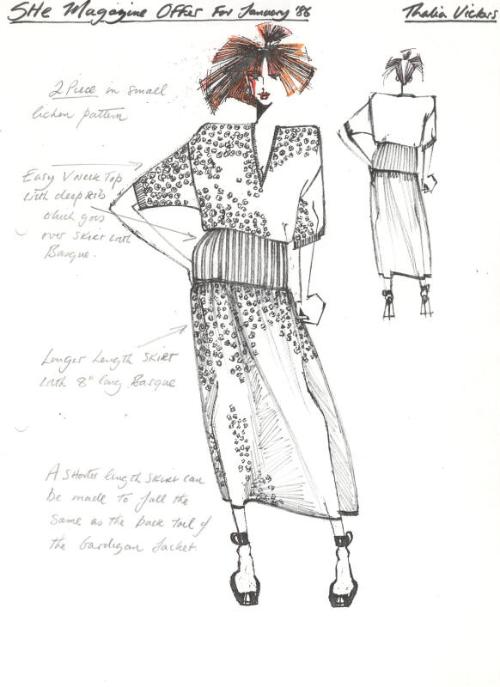 SHe Magazine Offer For January '86
Thalia Vickers
2 Piece in small
lichen pattern
Easy V neck Top
with deep Rib
which goes
over skirt with
Basque.
Longer Length skirt
with 8" long Basque
A shorter length skirt can
be made to fall the
same as the back tail of
the Cardigan Jacket